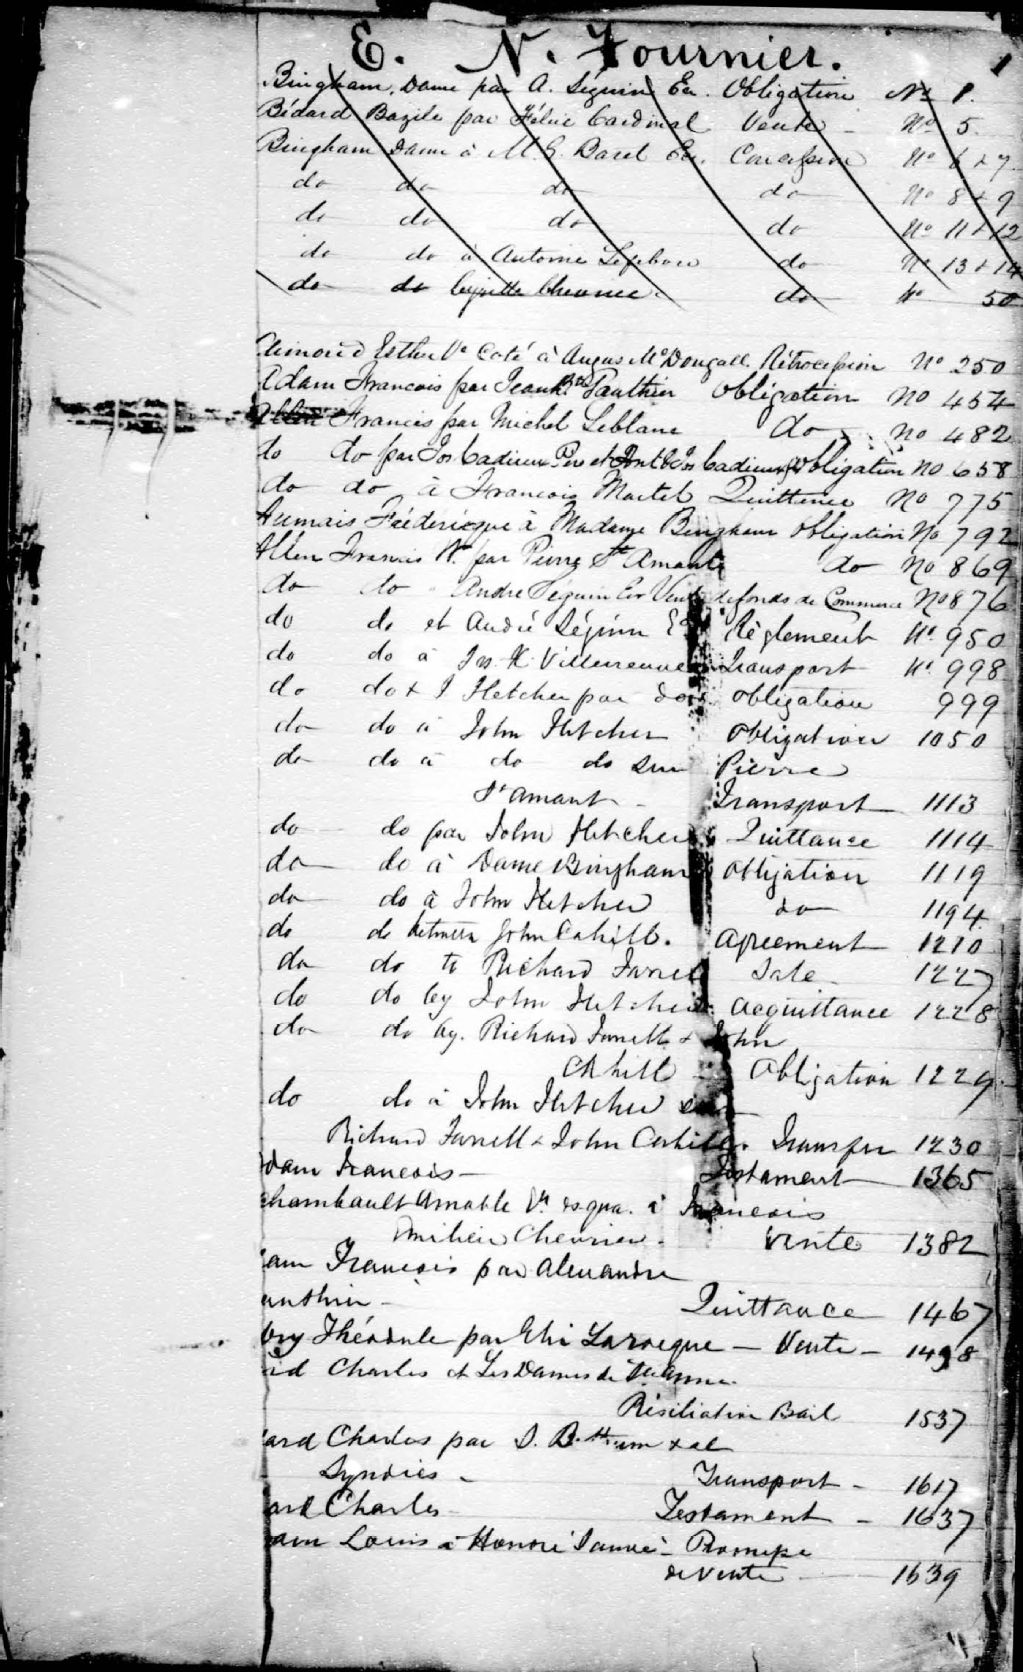 E. N. Fournier. 1
Bingham, Dame par A. Séguin Ecr. Obligation No 1.
Bédard Bazile par Félix Cardinal Vente No 5.
Bingham Dame à M. G. Barel Ecr. Concession No 6 & 7
do do do do No 8 & 9
do do do do No 11 & 12
do do à Antoine Lefebvre do No 13 & 14
do do do No 50
Esther Ve Coté à Angus McDougall Rétrocession No 250
Adam Francois par Jean Bte Gauthier Obligation No 454
Francis par Michel Leblanc do No 482
do do par Jos Cadieux Obligation No 658
do do à Francois Martel Quittance No 775
Aumais Fréderique à Madame Bingham Obligation No 792
Allen Francis W. par Pierre St Amant do No 869
do do André Séguin Ecr Vente de fonds de Commerce No 876
do do et André Séguin Ecr Règlement No 950
do do à Jos. H. Villeneuve Transport No 998
do do & J Fletcher par do Obligation 999
do do à John Fletcher Obligation 1050
do do à do do sur Pierre
St amant Transport 1113
do do par John Fletcher Quittance 1114
do do à Dame Bingham Obligation 1119
do do à John Fletcher do 1194
do do between John Cahill. Agreement 1210
do do to Richard Farrell Sale 1227
do do by John Fletcher Acquittance 1228
do do by. Richard Farrell & John
Cahill Obligation 1229
do do à John Fletcher sur
Richard Farrell & John Cahill. Transfer 1230
dam Francois Testament 1365
chambault Amable Ve esqua. à Francois
Emilien Chevrier Vente 1382
am Francois par Alexandre
authier Quittance 1467
bry Théodule par Elie Larocque — Vente — 1498
rd Charles et Les Dames de Ste Anne.
Résiliation Bail 1537
ard Charles par S. Bethum & al
Syndics Transport 1617
ard Charles Testament 1637
am Louis à Honoré Sauvé Promesse
de Vente 1639